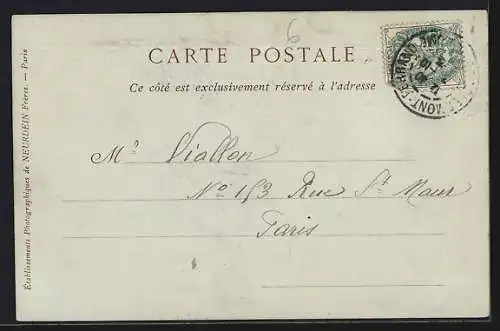 6
CARTE POSTALE
Ce côté est exclusivement réservé à l'adresse
Mr Viallon
No 153 Rue St Maur
Paris
Établissements Photographiques de NEURDEIN Frères. — Paris